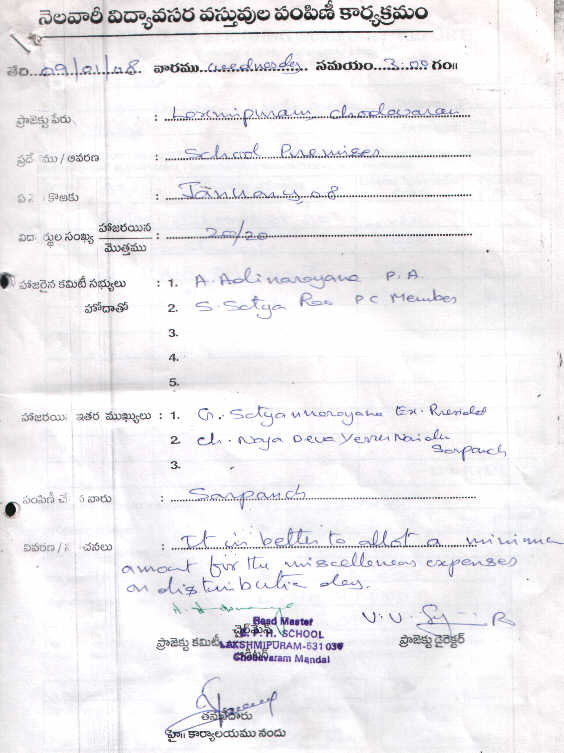 నెలవారీ విద్యావసర వస్తువుల పంపిణీ కార్యక్రమం
తేది...09/01/08. వారము Wednesday సమయం 3:00 గం॥
ప్రాజెక్టు పేరు : Laxmipuram, Chodavaram
/ ఆవరణ : School Premises
కొఱకు : January, 08
సంఖ్య హాజరయిన : 20/20
మొత్తము
హాజరైన కమిటీ సభ్యులు : 1. A. Adinarayana P.A.
హోదాతో 2. S. Satya Rao PC Member
3.
4.
5.
ఇతర ముఖ్యులు : 1. G. Satyannarayana Ex. President
2. Ch. Naga Deva Yerru Naidu
Sarpanch
3.
పంపిణీ వారు : Sarpanch
వివరణ / : It is better to allot a minimum
amount for the miscelleneous expenses
on distribution day.
Head Master
H. SCHOOL
LAKSHMIPURAM-531 036
Chodavaram Mandal
ప్రాజెక్టు కమిటీ ప్రాజెక్టు డైరెక్టర్
తనిఖీదారు
హై॥ కార్యాలయము నందు